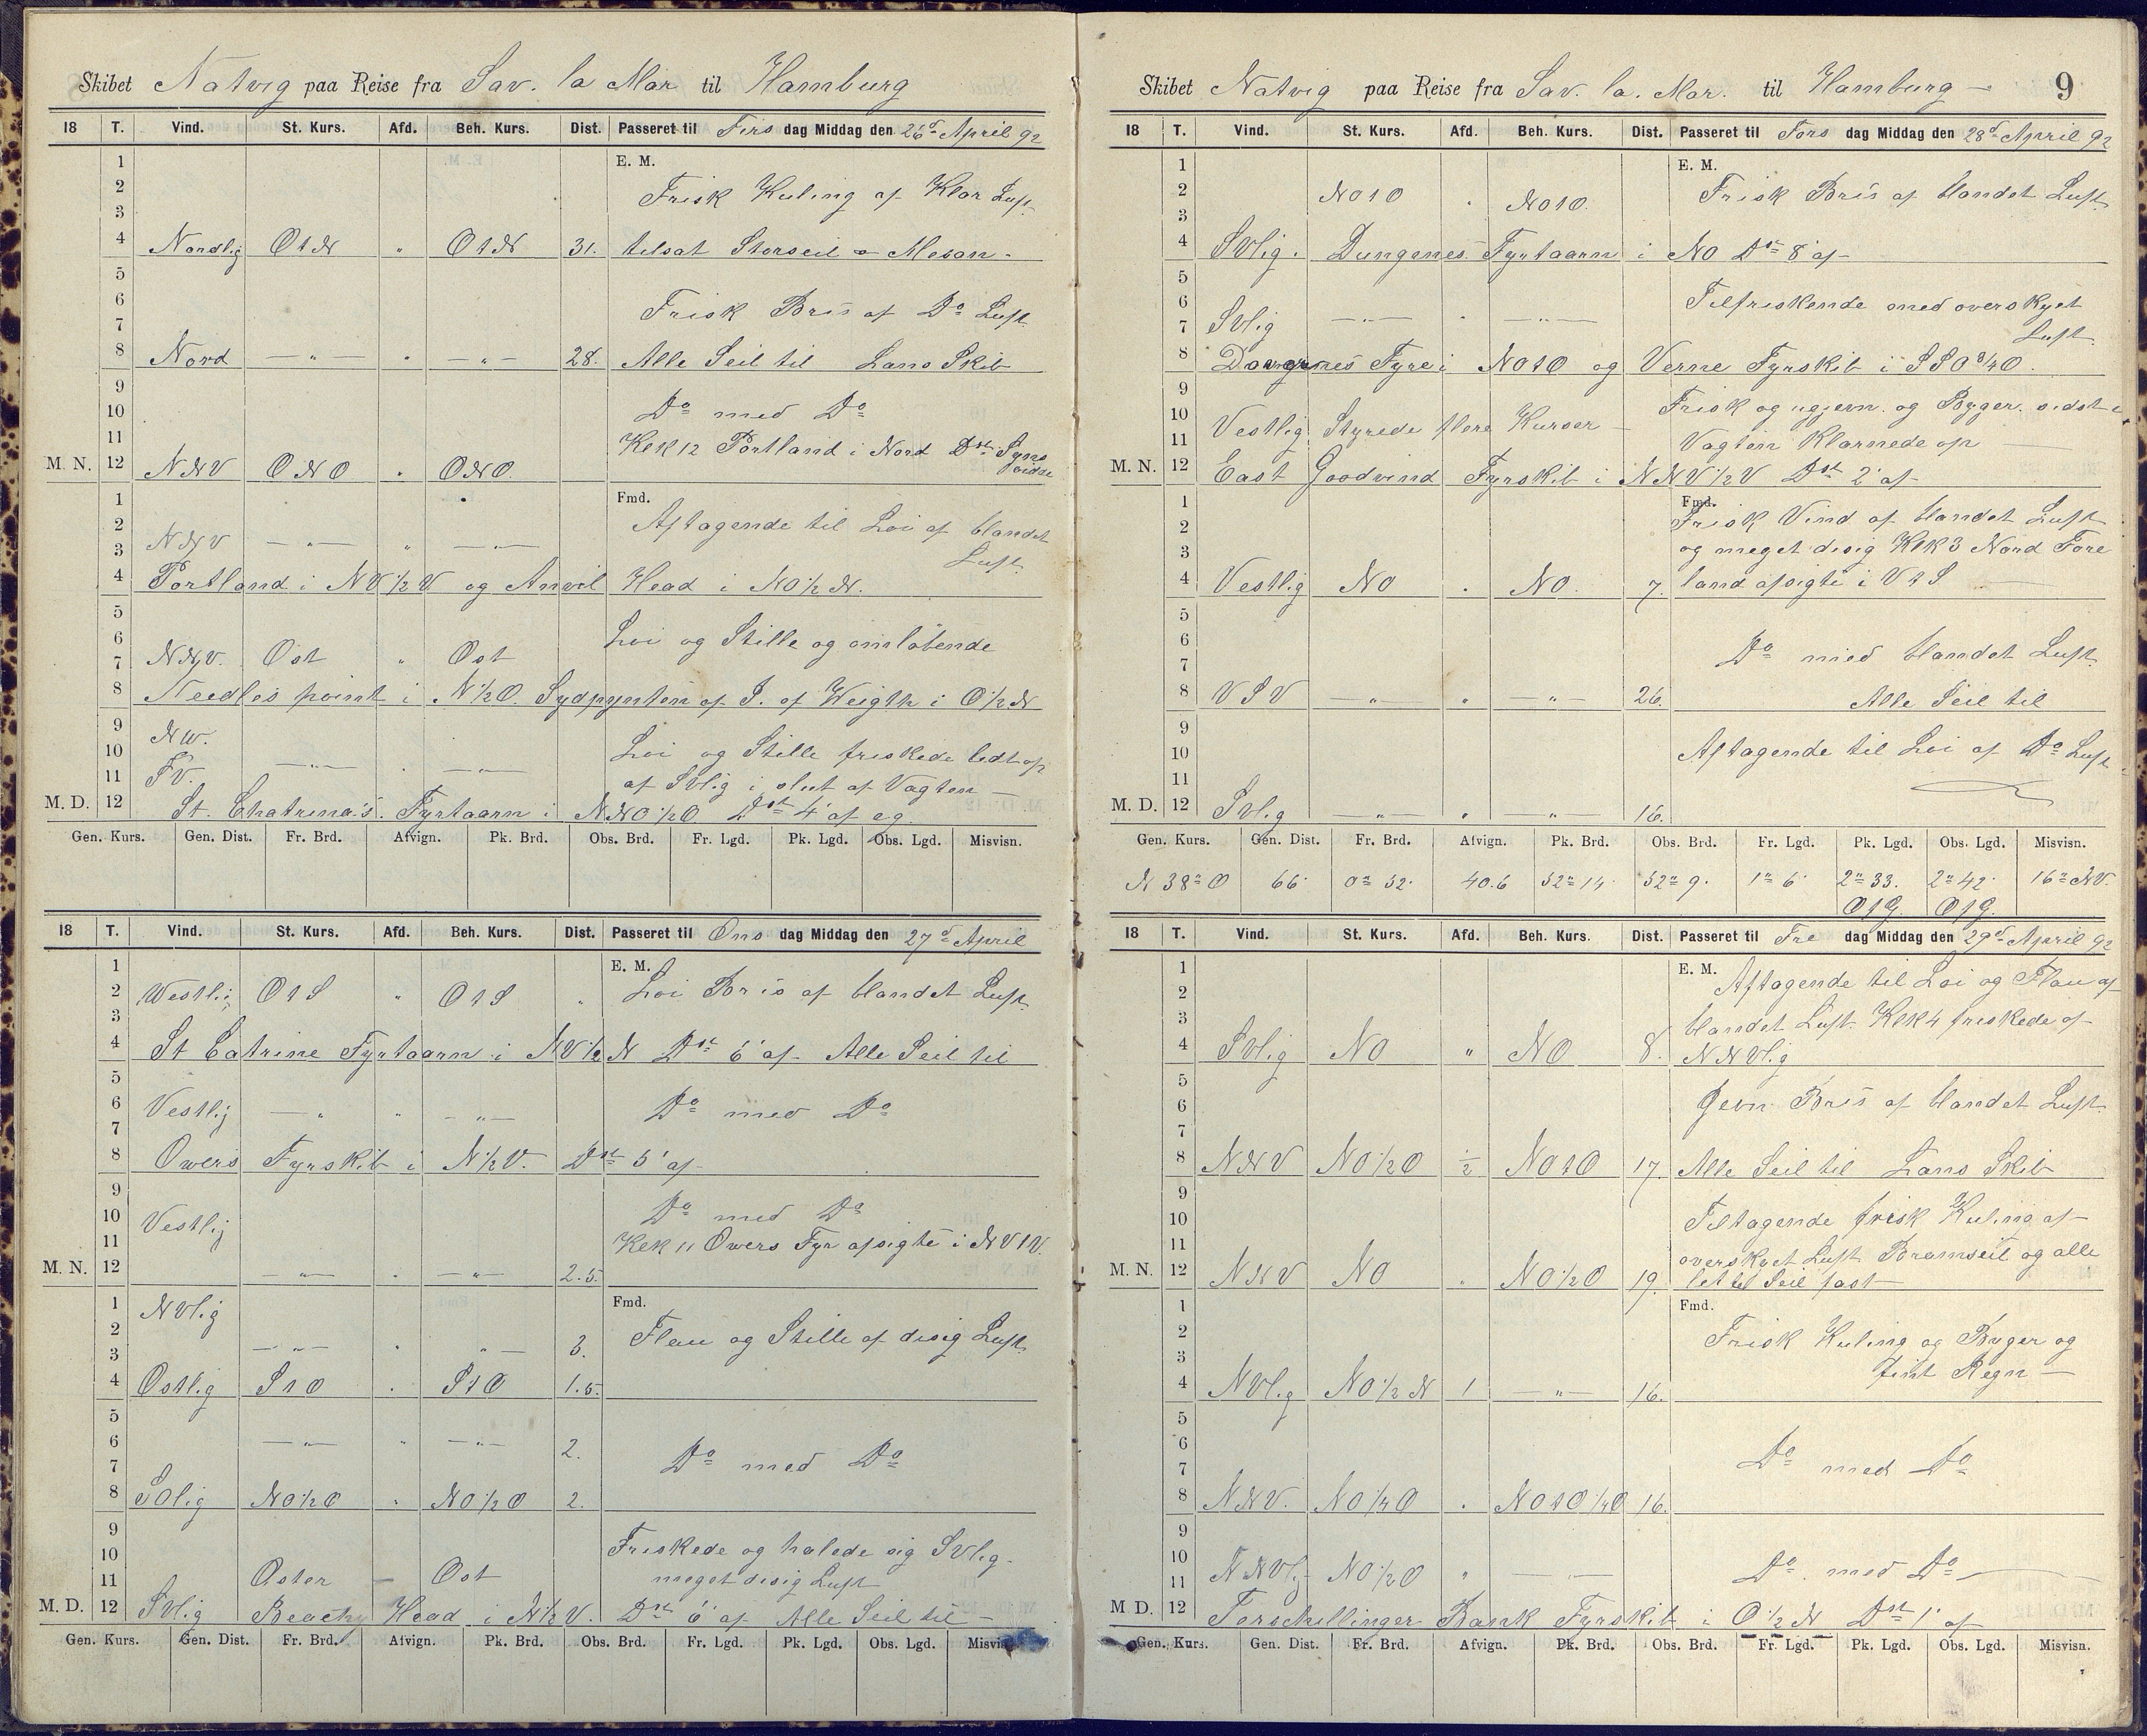 Skibet Natvig paa Reise fra Sav. la Mar til Hamburg
18 T. Vind. St. Kurs. Afd. Beh. Kurs. Dist. Passeret til Tirs dag Middag den 26d April 92
1 E. M.
2 Frisk Kuling af Klar Luft
3
4 Nordlig OtN " OtN 31. tilsat Storseil o Mesan -
5
6 Frisk Bris af Do Luft
7
8 Nord — " — " — " — 28. Alle Seil til Lans Skib
9
10 Do med Do
11 Klk 12 Portland i Nord Dst Syns
vidde
M. N. 12 NNV ONO " ONO
1 Fmd.
2 Aftagende til Loi af blandet
3 NNV — " — " — " — Luft
4 Portland i NV 1/2 V og Anvil Head i NO 1/2 N.
5
6 Loi og Stille og omløbende
7 NNV. Ost " Ost
8 Needles point i N 1/2 O. Sydpynten af I. of Weigth i O 1/2 N
9 NW.
10 Loi og Stille friskede lidt op
11 SV. — " — . — " — af SVlig i slut af Vagten —
M. D. 12 St. Chatrina's. Fyrtaarn i NNO 1/2 O Dst 4' af eg.
Gen. Kurs. Gen. Dist. Fr. Brd. Afvign. Pk. Brd. Obs. Brd. Fr. Lgd. Pk. Lgd. Obs. Lgd. Misvisn.
18 T. Vind. St. Kurs. Afd. Beh. Kurs. Dist. Passeret til Ons dag Middag den 27d April
1 E. M.
2 Westlig OtS " OtS " Loi Bris af blandet Luft
3
4 St Catrine Fyrtaarn i NV 1/2 N Dst 6' af - Alle Seil til
5
6 Vestlig — " — " — " — Do med Do
7
8 Owers Fyrskib i N 1/2 V. Dst 5' af -
9
10 Vestlig Do med Do
11 Klk 11 Owers Fyr afsigte i NVtV.
M. N. 12 — " — . — " — 2.5.
1 NVlig Fmd.
2 — " — " " — 3. Flau og Stille af disig Luft
3
4 Ostlig StO . StO 1.5.
5
6 — " — " — " — 2.
7 Do med Do
8 SOlig NO 1/2 O . NO 1/2 O 2.
9
10 Friskede og halede sig SVlig -
11 Osten — Ost meget disig Luft
M. D. 12 SVlig Beachy Head i N 1/2 V. Dst 6' af Alle Seil til —
Gen. Kurs. Gen. Dist. Fr. Brd. Afvign. Pk. Brd. Obs. Brd. Fr. Lgd. Pk. Lgd. Obs. Lgd. Misvisn.
Skibet Natvig paa Reise fra Sav. la. Mar. til Hamburg — 9
18 T. Vind. St. Kurs. Afd. Beh. Kurs. Dist. Passeret til Tors dag Middag den 28d April 92
1 E. M.
2 NOtO . NOtO. Frisk Bris af blandet Luft
3
4 SVlig. Dungenes Fyrtaarn i NO Dst 8' af -
5
6 Tilfriskende med overskyet
7 SVlig — " — . — " — Luft
8 Fyre i NOtO og Verne Fyrskib i SSO 3/4 O.
9
10 Vestlig Styrede flere Kurser — Frisk og ugjevn. og Byger. sidst i
11 Vagten Klarnede op —
M. N. 12 East Goodvind Fyrskib i NNV 1/2 V Dst 2' af -
1 Fmd.
2 Frisk Vind af blandet Luft
3 og meget disig Klk 3 Nord Fore
4 Vestlig NO . NO. 7. land afsigte i VtS —
5
6
7 Do med blandet Luft
8 VSV — " — " — " — 26. Alle Seil til
9
10 Aftagende til Loi af Do Luft
11
M. D. 12 SVlig — " — " — " — 16.
Gen. Kurs. Gen. Dist. Fr. Brd. Afvign. Pk. Brd. Obs. Brd. Fr. Lgd. Pk. Lgd. Obs. Lgd. Misvisn.
N 38° O 66' 0° 52' 40.6 52° 14' 52° 9' 1° 6' 2° 33' 2° 42' 16° NV.
OfG. OfG.
18 T. Vind. St. Kurs. Afd. Beh. Kurs. Dist. Passeret til Fre dag Middag den 29d April 92
1 E. M. Aftagende til Loi og Flau af
2
3 blandet Luft Klk 4 friskede af
4 SVlig NO " NO 8. NNVlig
5
6 Jevn Bris af blandet Luft
7
8 NNV NO 1/2 O 1/2 NOtO 17. Alle Seil til Lans Skib
9
10 Tiltagende frisk Kuling af
11 overskyet Luft Bramseil og alle
M. N. 12 NNV NO . NO 1/2 O 19. Seil fast —
1 Fmd.
2 Frisk Kuling og Byger og
3 fint Regn —
4 NVlig NO 1/2 N 1 — " — 16.
5
6
7 Do med Do
8 NNV. NO 1/4 O . NOtO 1/4 O 16.
9
10 Do. med Do
11 NNVlig NO 1/2 O " — " —
M D. 12 Terschellinger Bank Fyrskib i O 1/2 N Dst 1' af
Gen. Kurs. Gen. Dist. Fr. Brd. Afvign. Pk. Brd. Obs. Brd. Fr. Lgd. Pk. Lgd. Obs. Lgd. Misvisn.